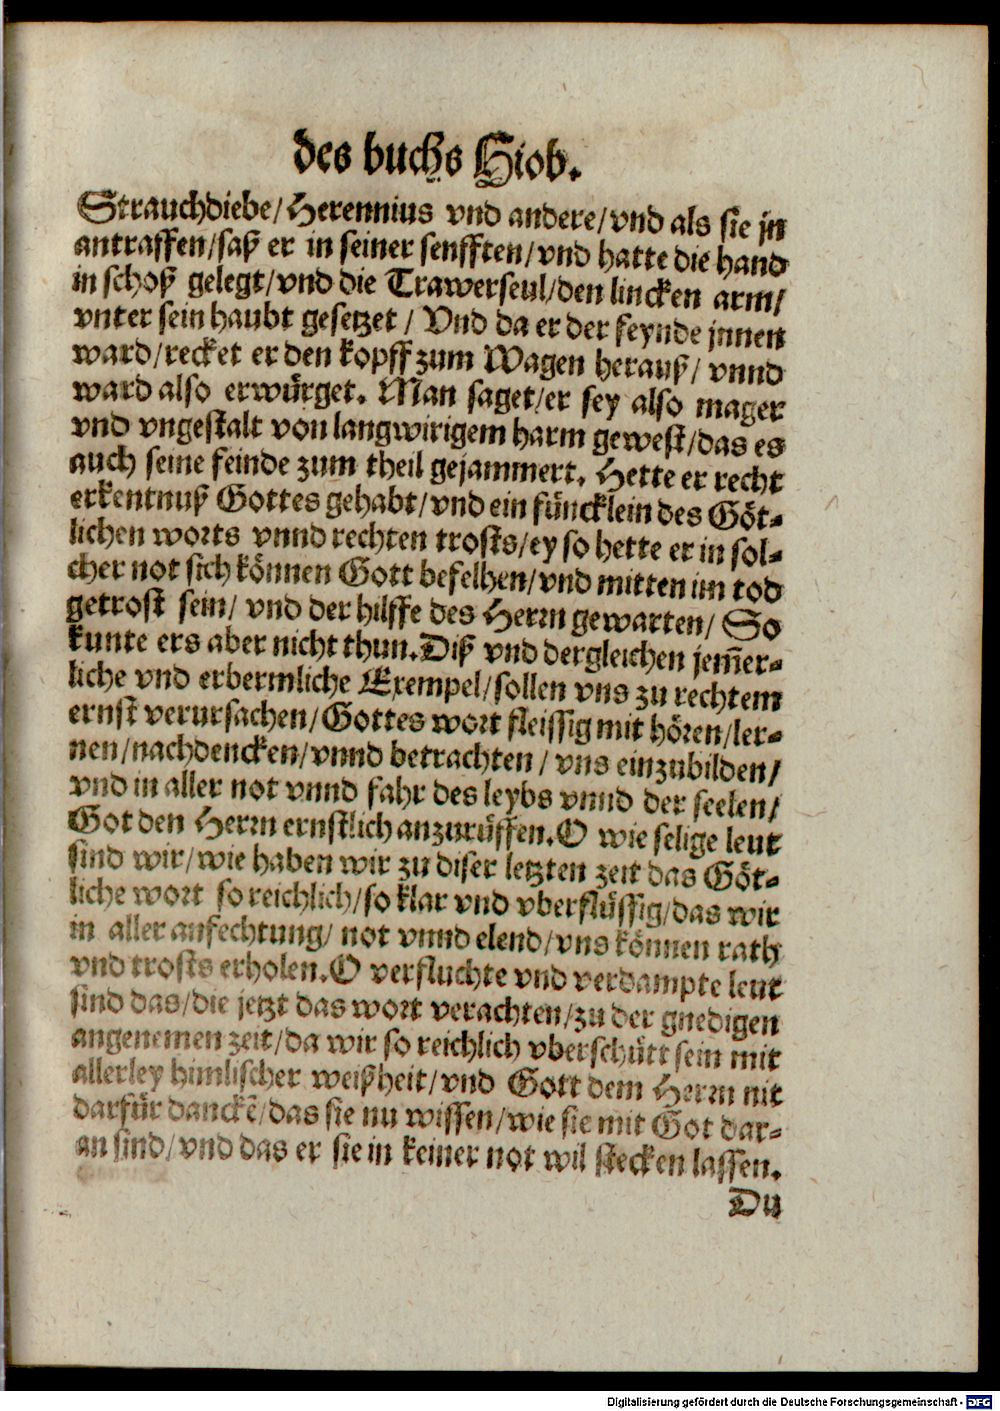 des buchs Hiob.
Strauchdiebe/ Herennius vnd andere/ vnd als sie jn
antraffen/ saß er in seiner senfften/ vnd hatte die hand
in schoß gelegt/ vnd die Trawerseul/ den lincken arm/
vnter sein haubt gesetzet / Vnd da er der feynde jnnen
ward/ recket er den kopff zum Wagen herauß/ vnnd
ward also erwürget. Man saget/ er sey also mager
vnd vngestalt von langwirigem harm gewest/ das es
auch seine feinde zum theil gejammert. Hette er recht
erkentnuß Gottes gehabt/ vnd ein füncklein des Göt-
lichen worts vnnd rechten trosts/ ey so hette er in sol-
cher not sich können Gott befelhen/ vnd mitten im tod
getrost sein/ vnd der hilffe des Herrn gewarten/ So
kunte ers aber nicht thun. Diß vnd dergleichen jem̃er-
liche vnd erbermliche Exempel/ sollen vns zu rechtem
ernst verursachen/ Gottes wort fleissig mit hören/ ler-
nen/ nachdencken/ vnnd betrachten / vns einzubilden/
vnd in aller not vnnd fahr des leybs vnnd der seelen/
Got den Herrn ernstlich anzurüffen. O wie selige leut
sind wir/ wie haben wir zu diser letzten zeit das Göt-
liche wort so reichlich/ so klar vnd vberflüssig/ das wir
in aller anfechtung/ not vnnd elend/ vns können rath
vnd trosts erholen. O verfluchte vnd verdampte leut
sind das/ die jetzt das wort verachten/ zu der gnedigen
angenemen zeit/ da wir so reichlich vberschütt sein mit
allerley himlischer weißheit/ vnd Gott dem Herrn nit
darfür danckẽ/ das sie nu wissen/ wie sie mit Got dar-
an sind/ vnd das er sie in keiner not wil stecken lassen.
Du
Digitalisierung gefördert durch die Deutsche Forschungsgemeinschaft - DFG